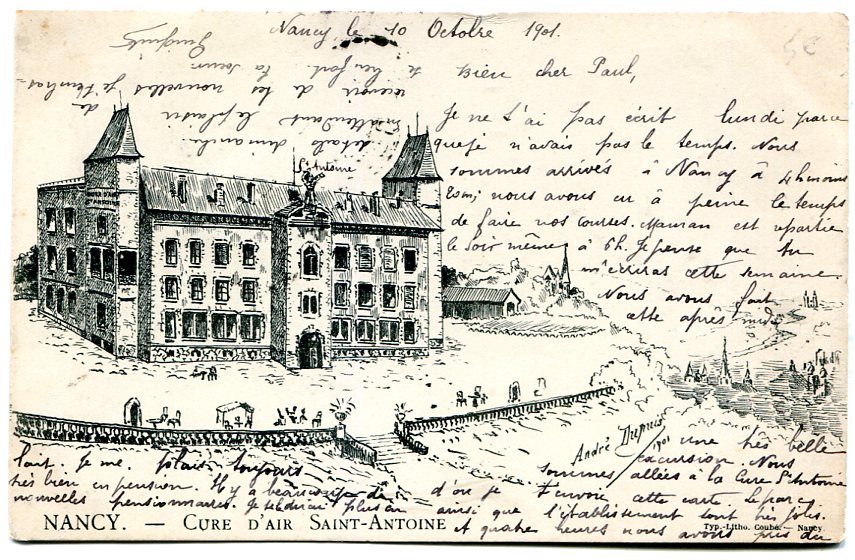 Nancy le 10 Octobre 1901.
Bien cher Paul,
Je ne t'ai pas écrit lundi parce
que je n'avais pas le temps. Nous
sommes arrivés à Nancy à 4h moins
nous avons eu à peine le temps
de faire nos courses. Maman est repartie
le soir même à 6h. Je pense que tu
m'écriras cette semaine.
Nous avons fait
cette après midi
une très belle
excursion. Nous
sommes allées à la Cure St Antoine
d'ou je t'envoie cette carte. Le parc
ainsi que l'établissement sont très jolis.
A quatre heures nous avons pris du
lait. Je me plais toujours
très bien en pension. Il y a beaucoup de
nouvelles pensionnaires. Je te dirai plus
détails dimanche
en attendant le plaisir de
recevoir de tes nouvelles je t'embrasse
bien fort. Ta sœur
St Antoine
CURE D'AIR
ST ANTOINE
André Dupuis
1901
NANCY. — CURE D'AIR SAINT-ANTOINE
Typ.-Litho. Coubé. — Nancy.